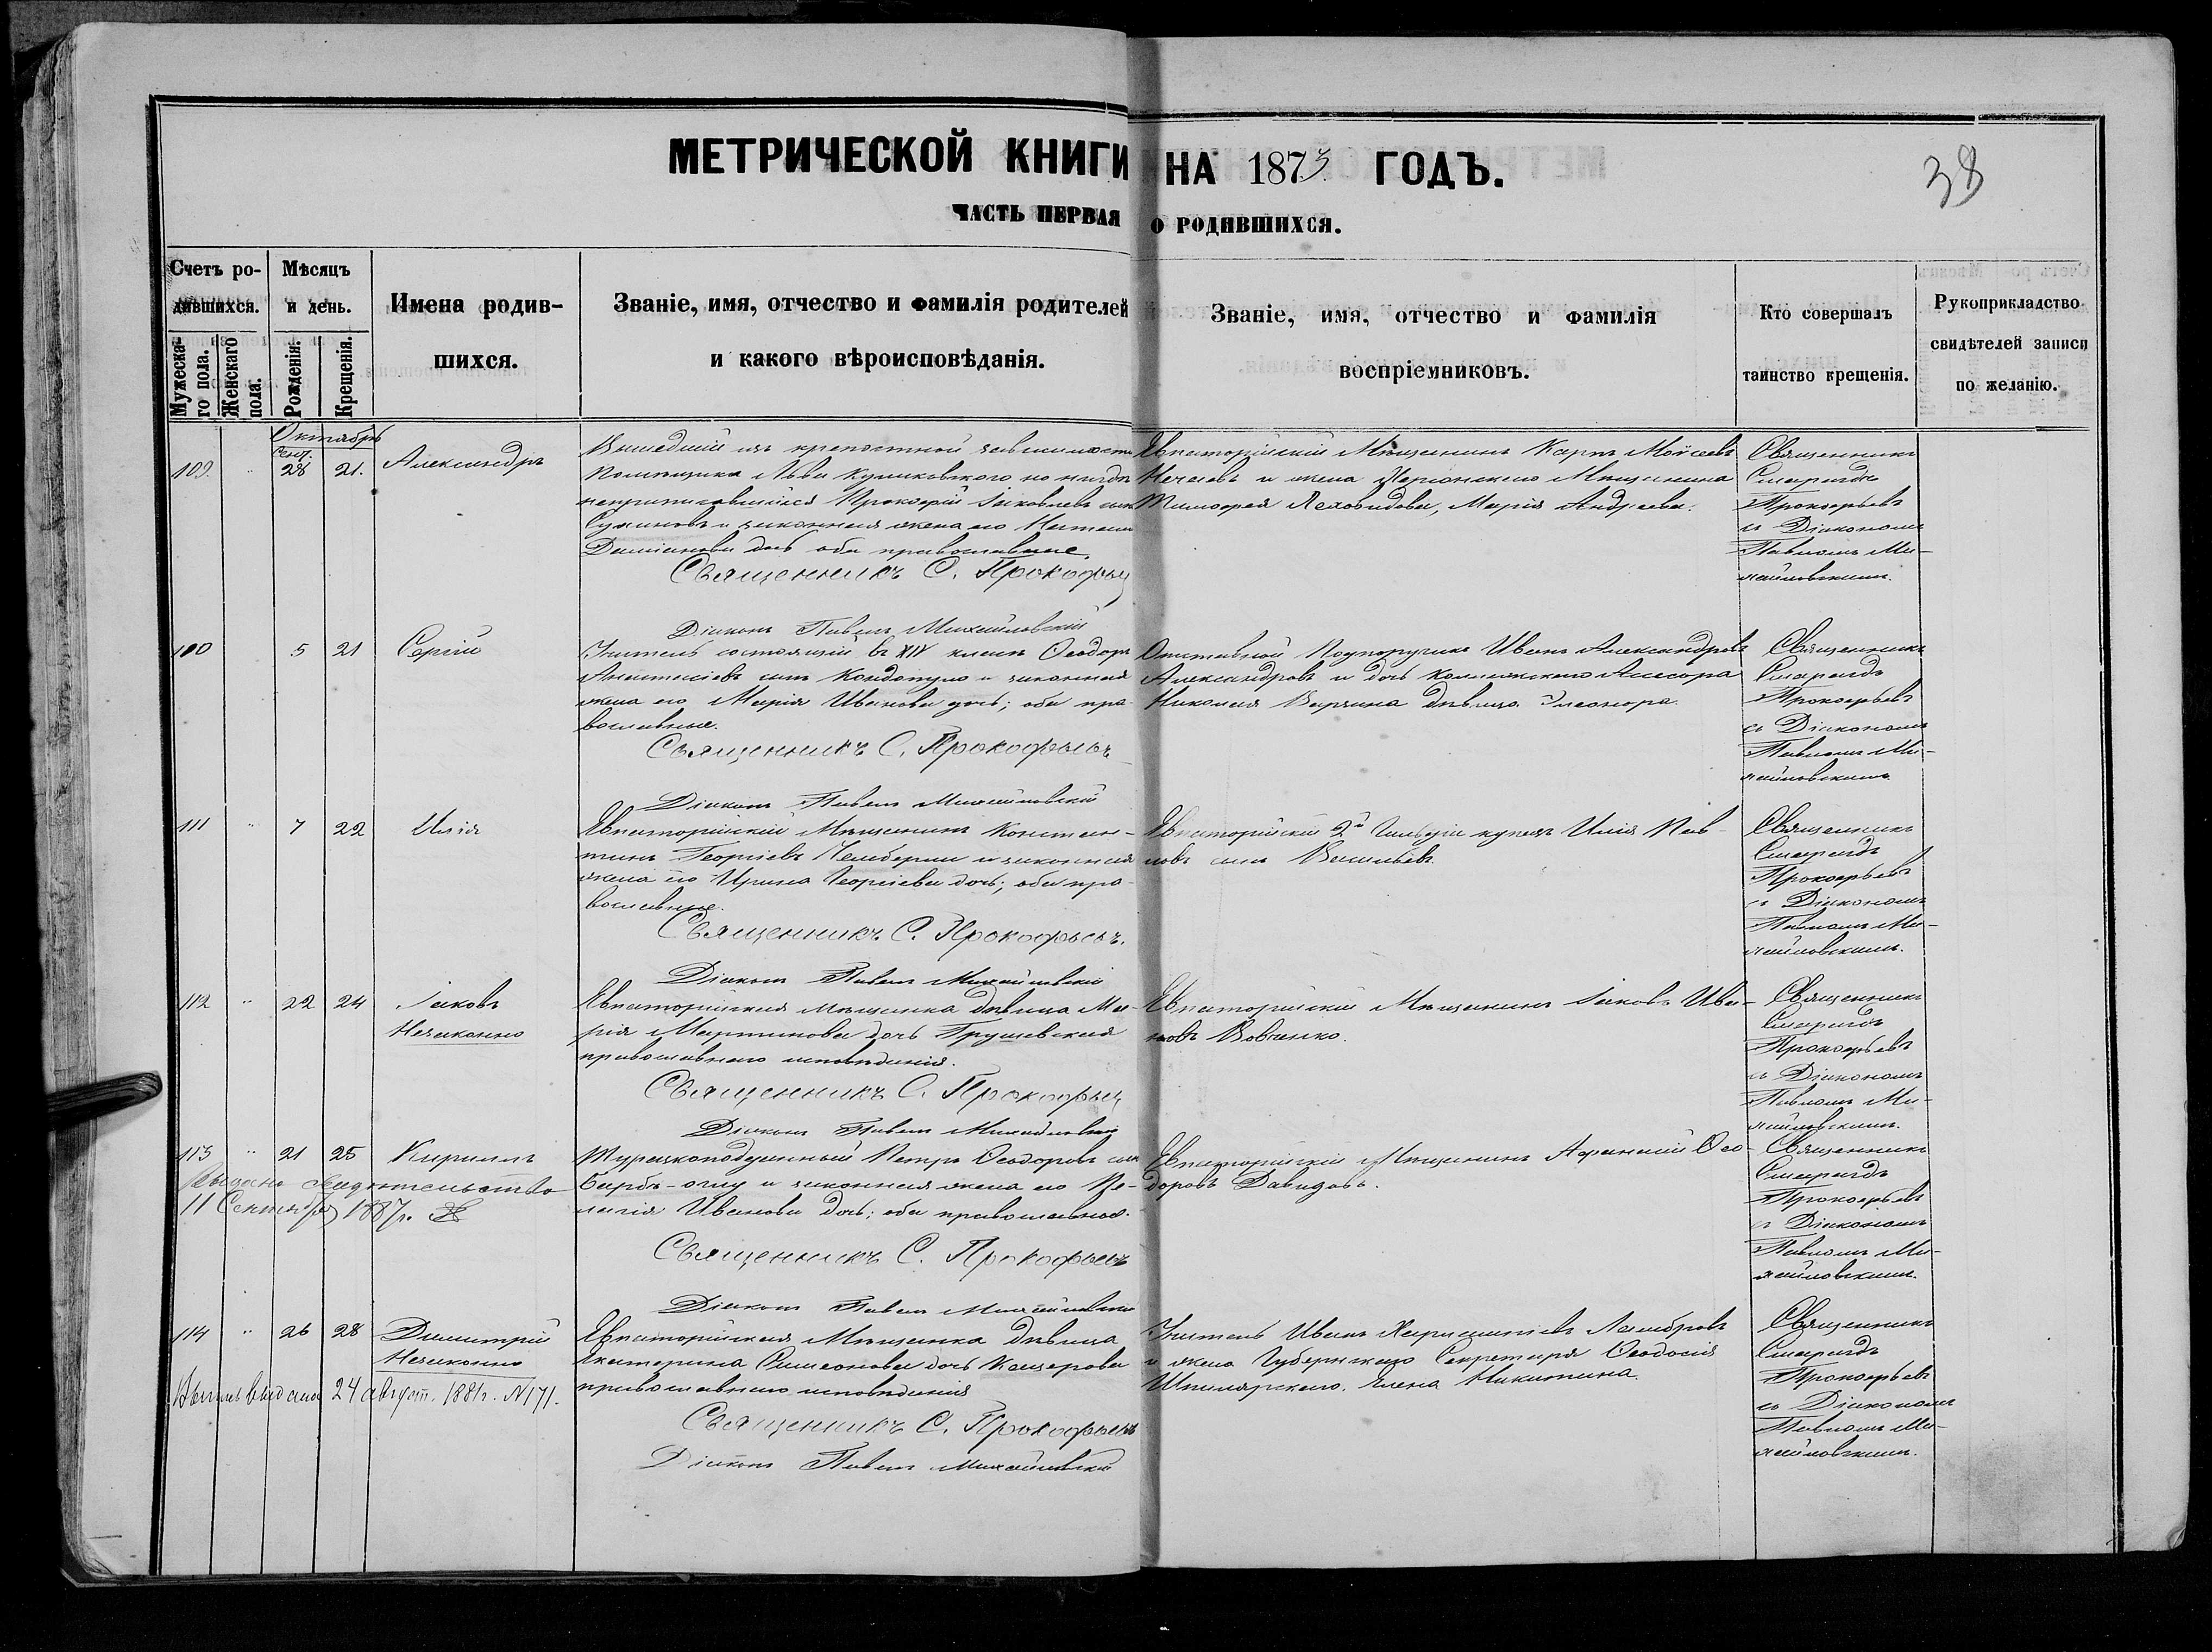 МЕТРИЧЕСКОЙ КНИГИ НА 1873 ГОДЪ.
38
ЧАСТЬ ПЕРВАЯ О РОДИВШИХСЯ.
Счетъ ро-
дившихся.
Мужеска-
го пола.
Женскаго
пола.
Мѣсяцъ
и день.
Рожденія.
Крещенія.
Имена родив-
шихся.
Званіе, имя, отчество и фамилія родителей
и какого вѣроисповѣданія.
Званіе, имя, отчество и фамилія
воспріемниковъ.
Кто совершалъ
таинство крещенія.
Рукоприкладство
свидѣтелей записи
по желанію.
Октябрь
Сент.
109. " 28 21. Александръ
Вышедшій изъ крепостной зависимости
Помѣщика Льва Куликовского но нигдѣ
неприписавшійся Прокофій Іаковлевъ сынъ
и законная жена его
Даміанова дочь оба православные.
Священникъ С. Прокофьев
Діаконъ Павелъ Михайловскій
Евпаторійскій Мѣщанинъ Карпъ Моисеевъ
Нечаевъ и жена Херсонскаго Мѣщанина
Тимофея Марія Андреева.
Священникъ
Смарагдъ
Прокофьевъ
съ Діакономъ
Павломъ Ми-
хайловскимъ.
110 5 21 Сергій
Учитель состоящій въ XIV классѣ Ѳеодоръ
Анастасіевъ сынъ Кондопуло и законная
жена его Марія Иванова дочь; оба пра-
вославные.
Священникъ С. Прокофьевъ
Діаконъ Павелъ Михайловскій
Отставной Подпоручикъ Иванъ Александровъ
Александровъ и дочь Коллежскаго Ассесора
Николая дѣвица Элеонора.
Священникъ
Смарагдъ
Прокофьевъ
съ Діакономъ
Павломъ Ми-
хайловскимъ.
111 " 7 22 Илія
Евпаторійскій Мѣщанинъ Констан-
тинъ Георгіевъ Челеберли и законная
жена его Ирина Георгіева дочь; оба пра-
вославные.
Священникъ С. Прокофьевъ.
Діаконъ Павелъ Михайловскій
Евпаторійскій 2й Гильдіи купецъ Илія Пав-
ловъ сынъ Васильевъ.
Священникъ
Смарагдъ
Прокофьевъ
съ Діакономъ
Павломъ Ми-
хайловскимъ.
112 " 22 24 Іаковъ
Незаконно
Евпаторійская мѣщанка дѣвица Ма-
рія Мартинова дочь Грушевская
православнаго исповѣданія.
Священникъ С. Прокофьев
Діаконъ Павелъ Михайловскій
Евпаторійскій Мѣщанинъ Іаковъ Ива-
новъ Вовченко.
Священникъ
Смарагдъ
Прокофьевъ
съ Діакономъ
Павломъ Ми-
хайловскимъ.
113 " 21 25 Кириллъ
Выдано свидѣтельство
11 Сентября 1887г.
Турецкоподданный Петръ Ѳеодоровъ сынъ
Сарбъ-оглу и законная жена его Пе-
лагія Иванова дочь; оба православные.
Священникъ С. Прокофьевъ
Діаконъ Павелъ Михайловскій
Евпаторійскій Мѣщанинъ Афанасій Ѳео-
доровъ Давидовъ.
Священникъ
Смарагдъ
Прокофьевъ
съ Діакономъ
Павломъ Ми-
хайловскимъ.
114 " 26 28 Димитрій
Незаконно
выдана 24 август. 1881г. N171.
Евпаторійская Мѣщанка дѣвица
Екатерина Симеонова дочь Кащерова
православнаго исповѣданія
Священникъ С. Прокофьевъ
Діаконъ Павелъ Михайловскій
Учитель Иванъ Харлампіевъ Ламбровъ
и жена Губернскаго Секретаря Ѳеодосія
Шпилярскаго, Елена Никитина.
Священникъ
Смарагдъ
Прокофьевъ
съ Діакономъ
Павломъ Ми-
хайловскимъ.